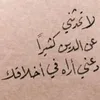 لا تحدثني
عن الدين كثيرًا
ودعني أراه في أخلاقك